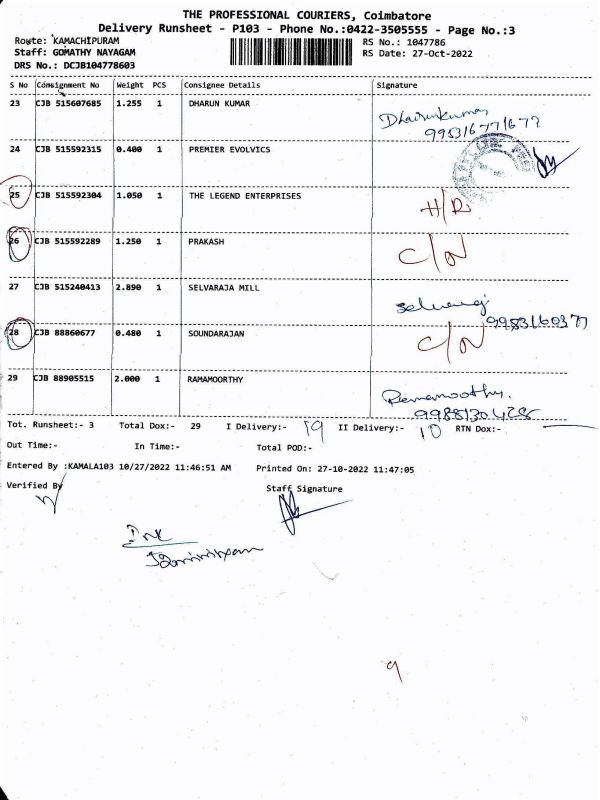 THE PROFESSIONAL COURIERS, Coimbatore
Delivery Runsheet - P103 - Phone No.:0422-3505555 - Page No.:3
Route: KAMACHIPURAM RS No.: 1047786
Staff: GOMATHY NAYAGAM RS Date: 27-Oct-2022
DRS No.: DCJB104778603
S No Consignment No Weight PCS Consignee Details Signature
23 CJB 515607685 1.255 1 DHARUN KUMAR Dharunkumar
24 CJB 515592315 0.400 1 PREMIER EVOLVICS
25 CJB 515592304 1.050 1 THE LEGEND ENTERPRISES
26 CJB 515592289 1.250 1 PRAKASH C/N
27 CJB 515240413 2.890 1 SELVARAJA MILL
28 CJB 88860677 0.480 1 SOUNDARAJAN C/N
29 CJB 88905515 2.000 1 RAMAMOORTHY Ramamoorthy.
Tot. Runsheet:- 3 Total Dox:- 29 I Delivery:- 19 II Delivery:- 10 RTN Dox:-
Out Time:- In Time:- Total POD:-
Entered By :KAMALA103 10/27/2022 11:46:51 AM Printed On: 27-10-2022 11:47:05
Verified By Staff Signature
9